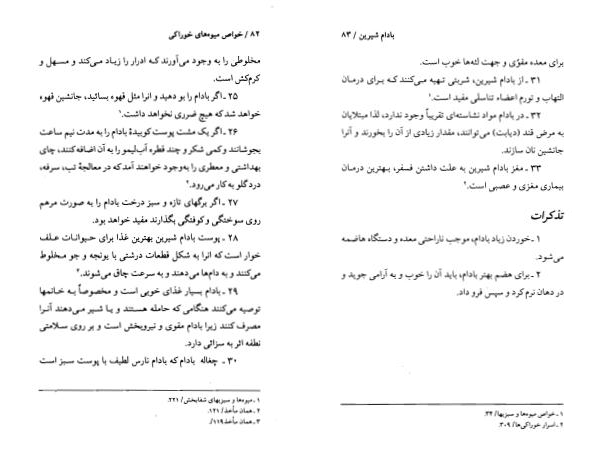 ۸۲ / خواص میوه‌های خوراکی
مخلوطی را به وجود می‌آورند که ادرار را زیاد می‌کند و مسهل و
کرم‌کش است.
۲۵ ـ اگر بادام را بو دهید و انرا مثل قهوه بسائید، جانشین قهوه
خواهد شد که هیچ ضرری نخواهد داشت.۱
۲۶ ـ اگر یک مشت پوست کوبیدهٔ بادام را به مدت نیم ساعت
بجوشانند وکمی شکر و چند قطره آب‌لیمو را به آن اضافه‌کنند، چای
بهداشتی و معطری را به‌وجود خواهند آمد که در معالجهٔ تب، سرفه،
دردگلو به کار می‌رود.۲
۲۷ ـ اگر برگهای تازه و سبز درخت بادام را به صورت مرهم
روی سوختگی و کوفتگی بگذارند مفید خواهد بود.
۲۸ ـ پوست بادام شیرین بهترین غذا برای حیوانات علف
خوار است که انرا به شکل قطعات درشتی با یونجه و جو مخلوط
می‌کنند و به دام‌ها می‌دهند و به سرعت چاق می‌شوند.۳
۲۹ ـ بادام بسیار غذای خوبی است و مخصوصاً به خانمها
توصیه می‌کنند هنگامی که حامله هستند و یا شیر می‌دهند آنرا
مصرف کنند زیرا بادام مقوی و نیروبخش است و بر روی سلامتی
نطفه اثر به سزائی دارد.
۳۰ ـ چغاله بادام که بادام نارس لطیف با پوست سبز است
۱ ـ میوه‌ها و سبزیهای شفابخش/ ۲۲۱.
۲ ـ همان مأخذ/ ۱۲۱.
۳ ـ همان مأخذ/۱۱۹.
بادام شیرین / ۸۳
برای معده مقوّی و جهت لثه‌ها خوب است.
۳۱ ـ از بادام شیرین، شربتی تهیه می‌کنند که برای درمان
التهاب و تورم اعضاء تناسلی مفید است.۱
۳۲ ـ در بادام مواد نشاسته‌ای تقریباً وجود ندارد، لذا مبتلایان
به مرض قند (دیابت) می‌توانند، مقدار زیادی از آن را بخورند و آنرا
جانشین نان سازند.
۳۳ ـ مغز بادام شیرین به علت داشتن فسفر، بهترین درمان
بیماری مغزی و عصبی است.۲
تذکرات
۱ ـ خوردن زیاد بادام، موجب ناراحتی معده و دستگاه هاضمه
می‌شود.
۲ ـ برای هضم بهتر بادام، باید آن را خوب و به آرامی جوید و
در دهان نرم کرد و سپس فرو داد.
۱ ـ خواص میوه‌ها و سبزیها/ ۳۴.
۲ ـ اسرار خوراکی‌ها/ ۳۰۹.